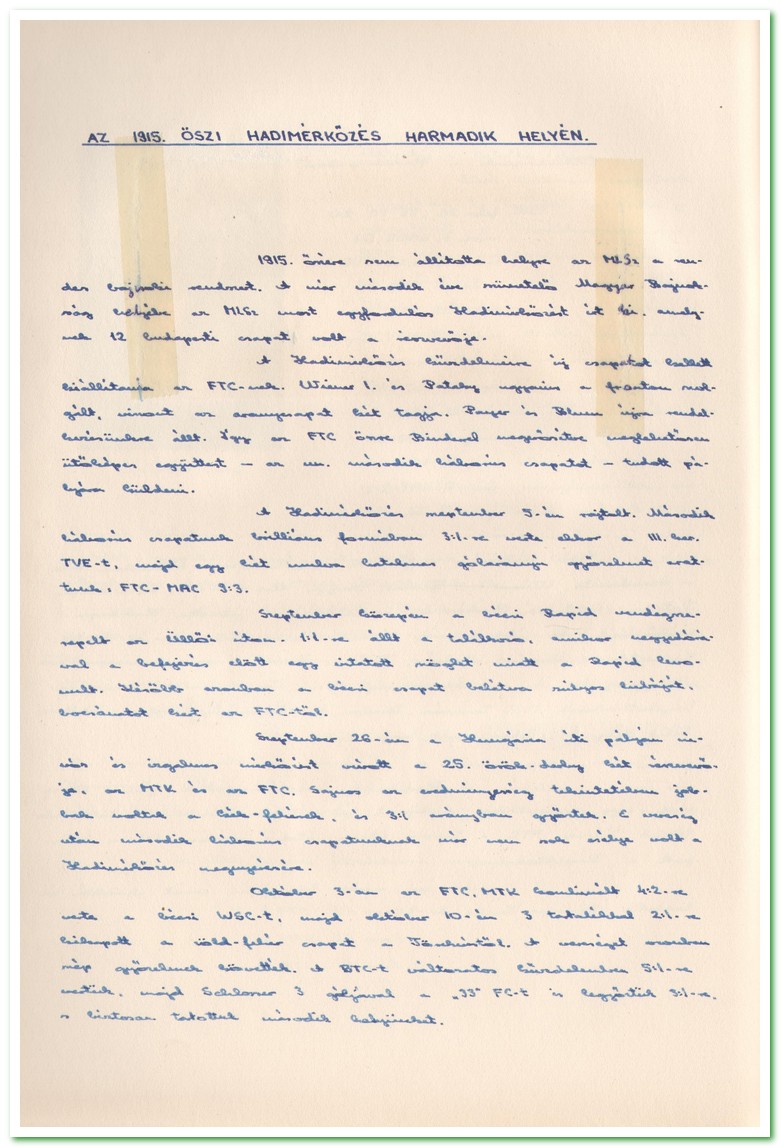 AZ 1915. ŐSZI HADIMÉRKŐZÉS HARMADIK HELYÉN.
1915. őszére sem állította helyre az MLSz a ren-
des bajnoki rendszert. A már második éve szünetelő Magyar Bajnok-
ság helyébe az MLSz most egyfordulós Hadimérkőzést írt ki, amely-
nek 12 budapesti csapat volt a résztvevője.
A Hadimérkőzés küzdelmeire új csapatot kellett
kiállítania az FTC-nek. Wiener I. és Pataky ugyanis a fronton szol-
gált, viszont az aranycsapat két tagja, Payer és Blum újra rendel-
kezésünkre állt. Így az FTC össze megerősítve meglehetősen
ütőképes együttest — az un. második háborús csapatot — tudott pá-
lyára küldeni.
A Hadimérkőzés szeptember 5-én rajtolt. Második
háborús csapatunk brilliáns formában 3:1-re verte ekkor a III. ker.
TVE-t, majd egy hét mulva hatalmas gólarányú győzelmet arat-
tunk: FTC-MAC 9:3.
Szeptember közepén a bécsi Rapid vendégsze-
repelt az Üllői úton. 1:1-re állt a találkozó, amikor negyedórá-
val a befejezés előtt egy miatt a Rapid levo-
nult. Később azonban a bécsi csapat belátva súlyos hibáját,
bocsánatot kért az FTC-től.
Szeptember 26-án a Hungária úti pályán szí-
vós és izgalmas mérkőzést vívott a 25. örök-derby két résztvevő-
je, az MTK és az FTC. Sajnos az eredményesség tekintetében job-
bak voltak a kék-fehérek, és 3:1 arányban győztek. E vereség
után második háborús csapatunknak már nem sok esélye volt a
Hadimérkőzés megnyerésére.
Október 3-án az FTC, MTK kombinált 4:2-re
verte a bécsi WSC-t, majd október 10-én 3 tartalékkal 2:1-re
kikapott a zöld-fehér csapat a Törekvéstől. A vereséget azonban
szép győzelmek követték. A BTC-t változatos küzdelemben 5:1-re
vertük, majd Schlosser 3 góljával a „33" FC-t is legyőztük 3:1-re,
s biztosan tartottuk második helyünket.